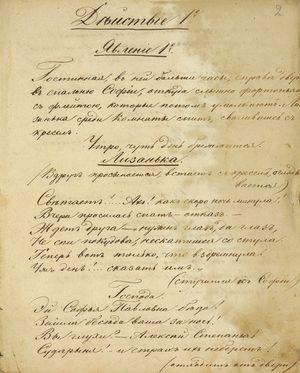 2
Дѣйствіе 1е
Явленіе 1е
Гостинная, въ ней большіе часы, справа дверь
въ спальню Софіи, откуда слышно фортопьяно
съ флейтою, которые потомъ умолкаютъ. Ли-
занька среди комнаты спитъ, свѣсившись съ
креселъ.
Утро, чуть день брежжится.
Лизанька.
(Вдругъ просыпается, встаетъ съ креселъ, огляды-
вается)
Свѣтаетъ!.. Ахъ! какъ скоро ночь минула!
Вчера просилась спать – отказъ. –
Ждемъ друга – нуженъ глазъ, да глазъ,
Не спи покудова, нескатишься со стула.
Теперь вотъ только что вздремнула!
Ужъ день!.. сказать имъ..
(стучится къ Софіи)
Господа!
Эй Софья Павловна бѣда!
Зашла бесѣда ваша за ночь!
Вы глухи? – Алексѣй Степанычъ!
Сударыня! – и страхъ ихъ неберетъ!
(отходитъ отъ двери)